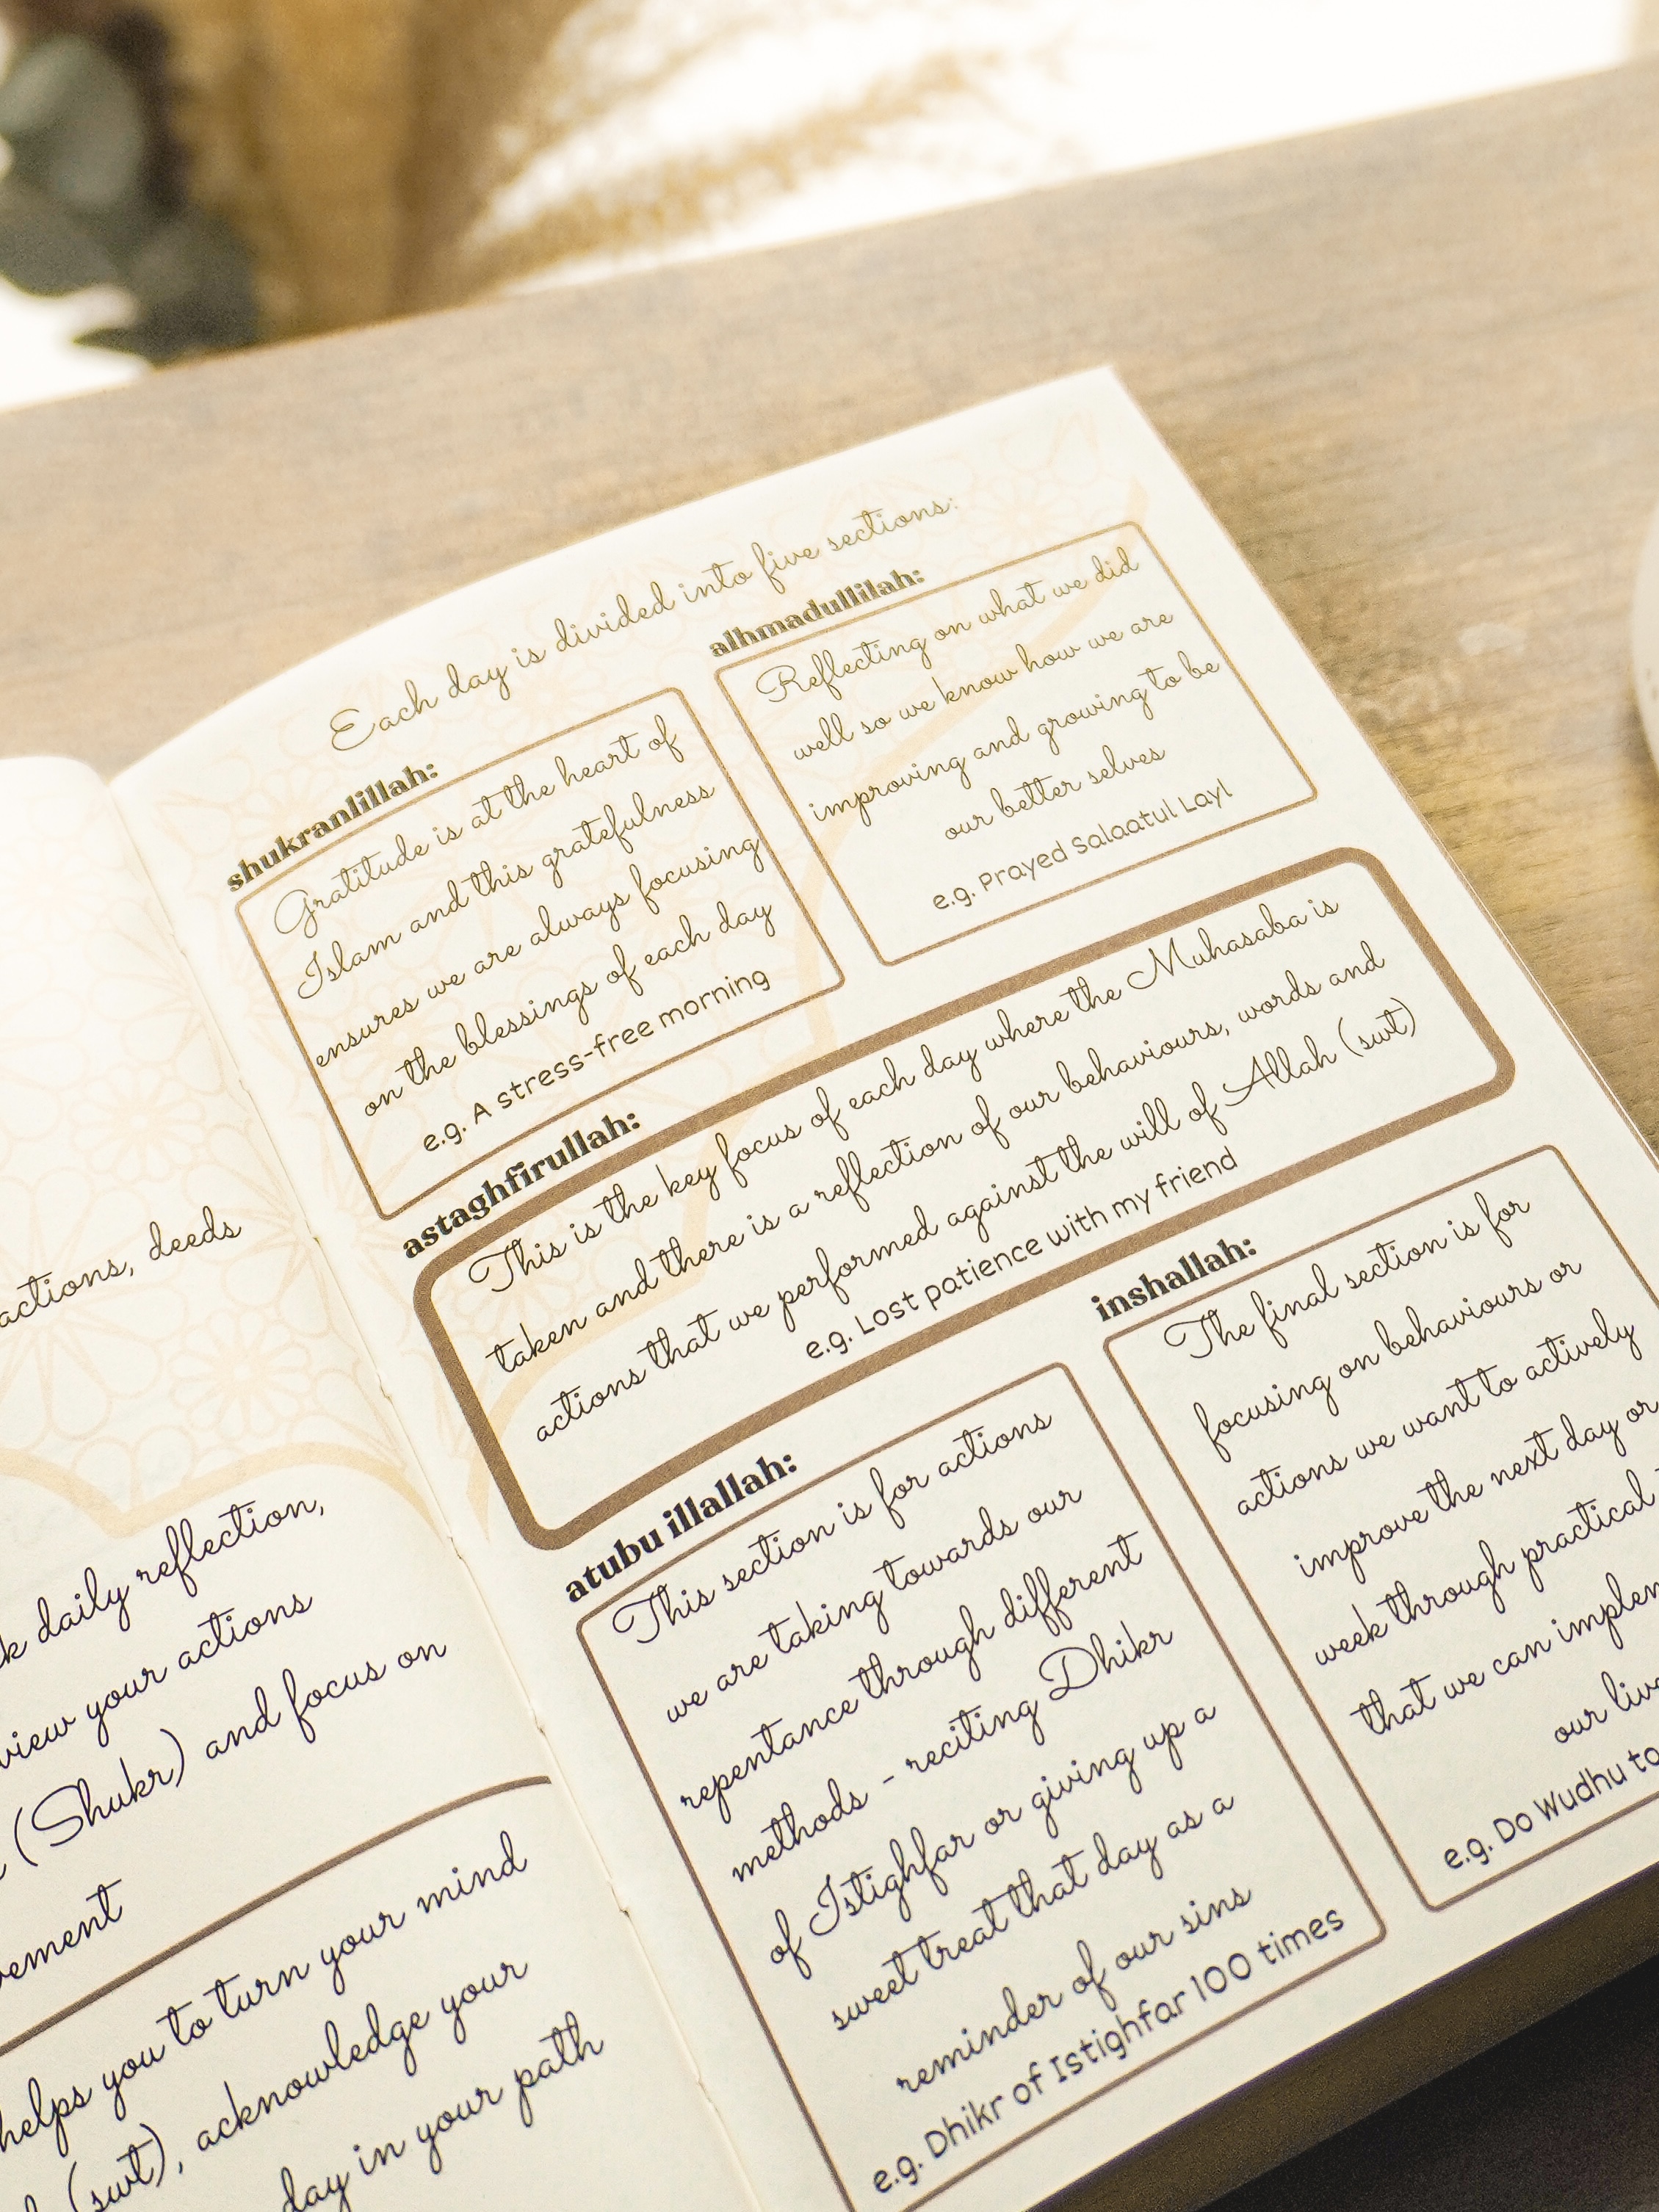 actions, deeds
daily reflection,
your actions
(Shukr) and focus on
helps you to turn your mind
(swt), acknowledge your
day in your path
Each day is divided into five sections:
shukranlillah:
Gratitude is at the heart of
Islam and this gratefulness
ensures we are always focusing
on the blessings of each day
e.g. A stress-free morning
alhmadullilah:
Reflecting on what we did
well so we know how we are
improving and growing to be
our better selves
e.g. Prayed Salaatul Layl
astaghfirullah:
This is the key focus of each day where the Muhasaba is
taken and there is a reflection of our behaviours, words and
actions that we performed against the will of Allah (swt)
e.g. Lost patience with my friend
atubu illallah:
This section is for actions
we are taking towards our
repentance through different
methods - reciting Dhikr
of Istighfar or giving up a
sweet treat that day as a
reminder of our sins
e.g. Dhikr of Istighfar 100 times
inshallah:
The final section is for
focusing on behaviours or
actions we want to actively
improve the next day or
week through practical
that we can
our
e.g. Do Wudhu to